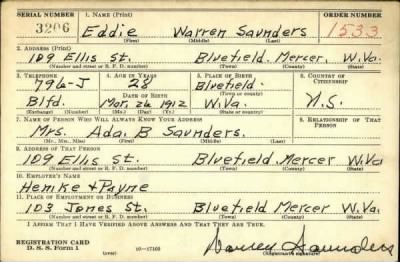 SERIAL NUMBER 1. NAME (Print) ORDER NUMBER
3206 Eddie Warren Saunders 1533
(First) (Middle) (Last)
2. ADDRESS (Print)
109 Ellis St. Bluefield, Mercer, W.Va.
(Number and street or R. F. D. number) (Town) (County) (State)
3. TELEPHONE 4. AGE IN YEARS 5. PLACE OF BIRTH 6. COUNTRY OF CITIZENSHIP
796-J 28 Bluefield
DATE OF BIRTH (Town or county)
Blfd. Mar. 26 1912 W.Va. U.S.
(Exchange) (Number) (Mo.) (Day) (Yr.) (State or country)
7. NAME OF PERSON WHO WILL ALWAYS KNOW YOUR ADDRESS 8. RELATIONSHIP OF THAT PERSON
Mrs. Ada B Saunders.
(Mr., Mrs., Miss) (First) (Middle) (Last)
9. ADDRESS OF THAT PERSON
109 Ellis St. Bluefield, Mercer W.Va
(Number and street or R. F. D. number) (Town) (County) (State)
10. EMPLOYER'S NAME
Hemke & Payne
11. PLACE OF EMPLOYMENT OR BUSINESS
103 Jones St. Bluefield Mercer W.Va.
(Number and street or R. F. D. number) (Town) (County) (State)
I AFFIRM THAT I HAVE VERIFIED ABOVE ANSWERS AND THAT THEY ARE TRUE.
REGISTRATION CARD
D. S. S. Form 1 (over) 16—17105 Warren Saunders
(Registrant's signature)